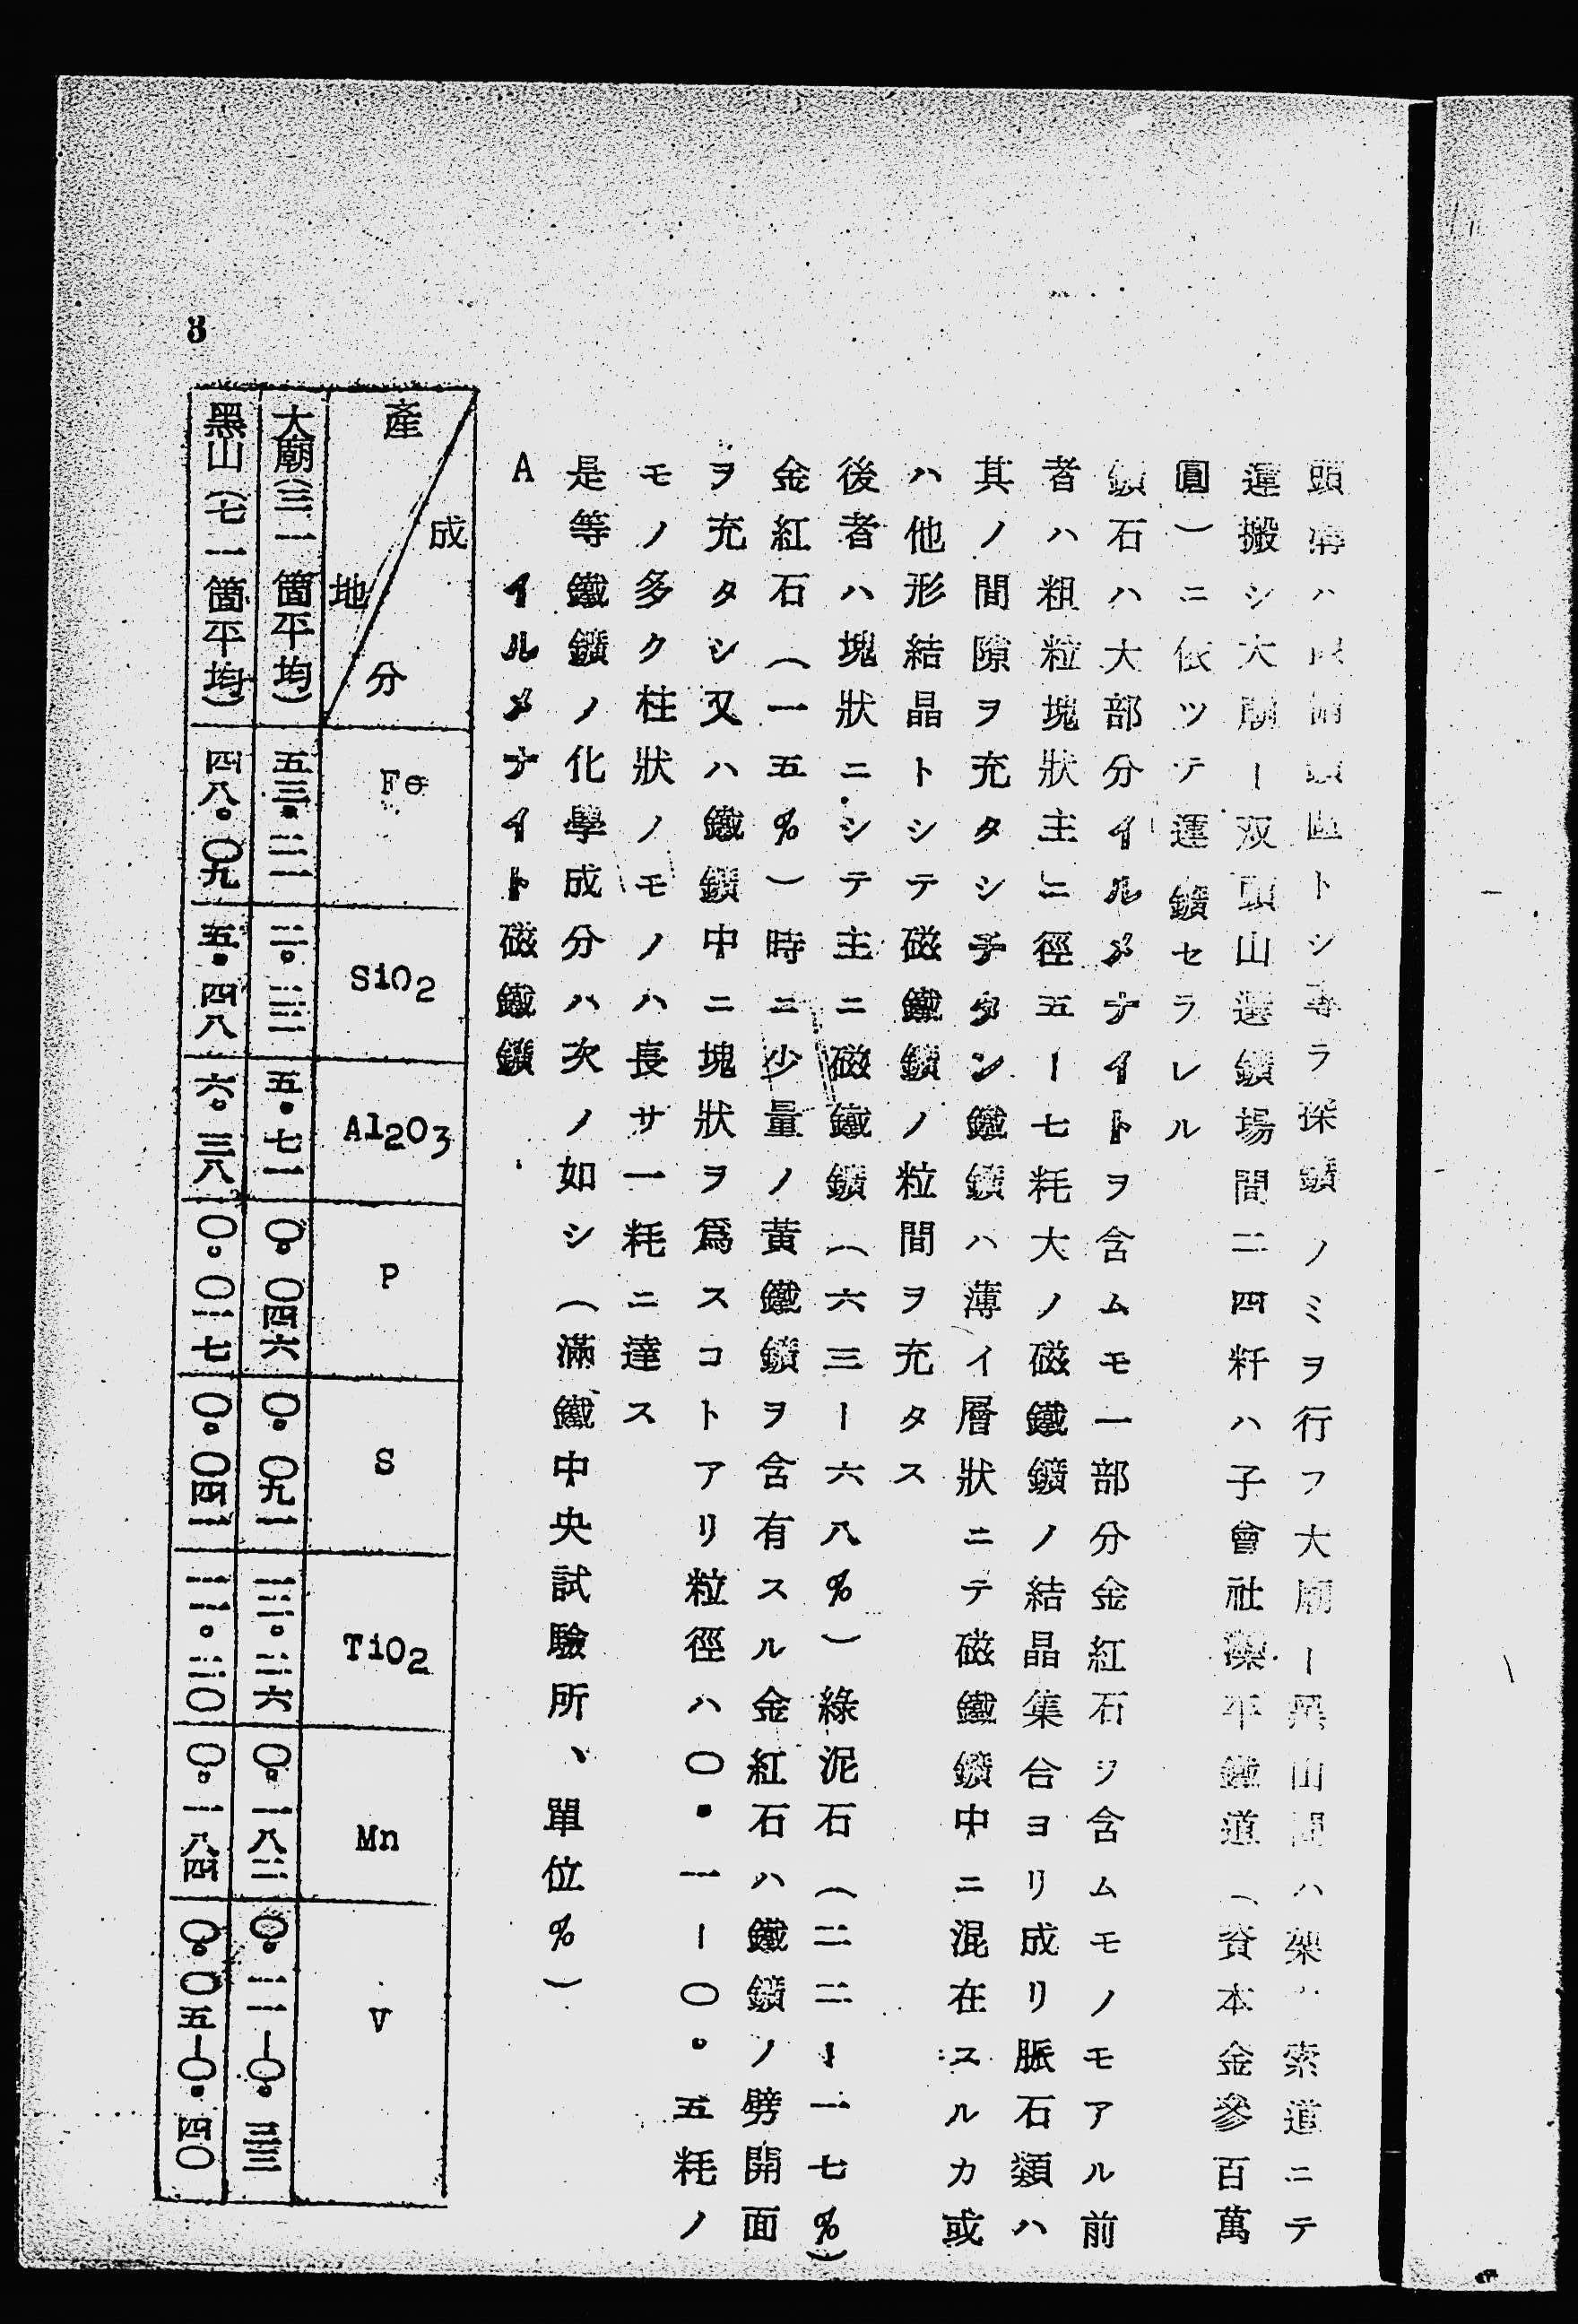 頭溝ハ
トシ專ラ探鑛ノミヲ行フ大廟ー黑山間ハ架
索道ニテ
運搬シ大廟ー双頭山選鑛場間二四粁ハ子會社灤平鐵道(資本金參百萬
圓)ニ依ツテ運鑛セラレル
鑛石ハ大部分イルメナイトヲ含ムモ一部分金紅石ヲ含ムモノモアル前
者ハ粗粒塊狀主ニ徑五ー七粍大ノ磁鐵鑛ノ結晶集合ヨリ成リ脈石類ハ
其ノ間隙ヲ充タシチタン鐵鑛ハ薄イ層狀ニテ磁鐵鑛中ニ混在スルカ或
ハ他形結晶トシテ磁鐵鑛ノ粒間ヲ充タス
後者ハ塊狀ニシテ主ニ磁鐵鑛(六三ー六八%)綠泥石(二二ー一七%)
金紅石(一五%)時ニ少量ノ黃鐵鑛ヲ含有スル金紅石ハ鐵鑛ノ劈開面
ヲ充タシ又ハ鐵鑛中ニ塊狀ヲ爲スコトアリ粒徑ハ〇・一ー〇・五粍ノ
モノ多ク柱狀ノモノハ長サ一粍ニ達ス
是等鐵鑛ノ化學成分ハ次ノ如シ(滿鐵中央試驗所、單位%)
A イルメナイト磁鐵鑛
產地 成分 Fe SiO2 Al2O3 P S TiO2 Mn V
大廟(三一箇平均) 五三・二一 二〇・三三 五・七一 〇・〇四六 〇・〇九一 一三・二六 〇・一八二 〇・二一ー〇・三三
黑山(七一箇平均) 四八・〇九 五・四八 六・三八 〇・〇二七 〇・〇四一 一一・三〇 〇・一八四 〇・〇五ー〇・四〇
3